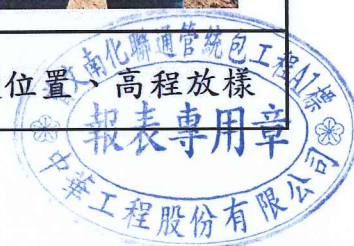 位置、高程放樣
曾文南化聯通管統包工程A1標
報表專用章
中華工程股份有限公司